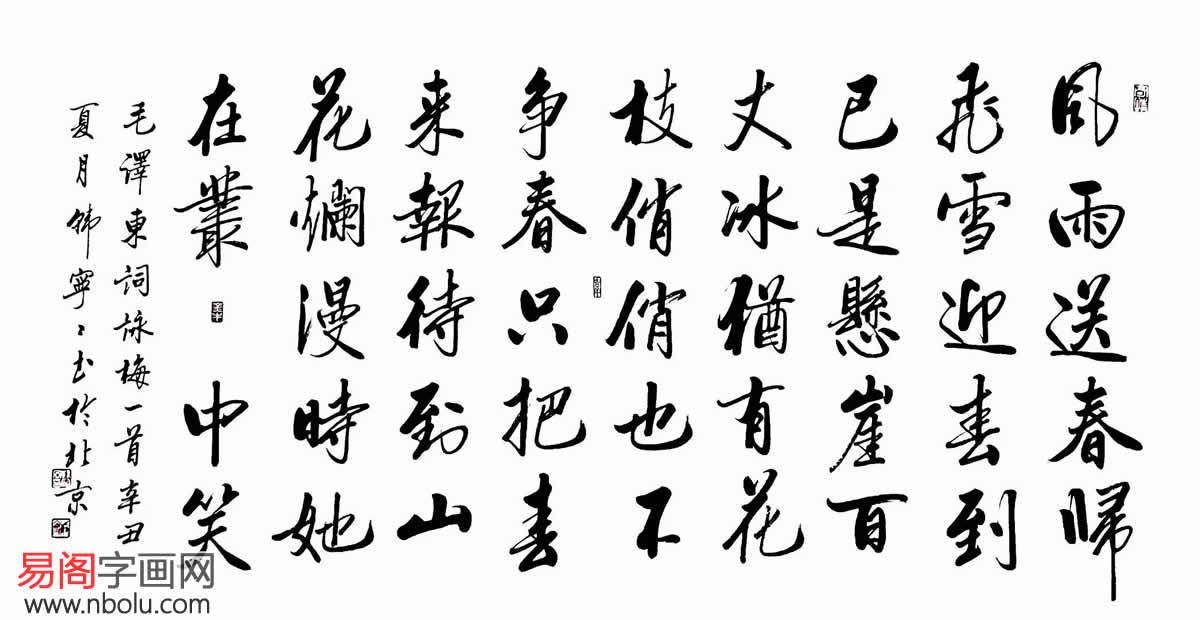 风雨送春歸
飛雪迎春到
已是懸崖百
丈冰猶有花
枝俏俏也不
争春只把春
来報待到山
花爛漫時她
在叢中笑
毛譯東詞詠梅一首辛丑
夏月韩寧〻书於北京
易阁字画网
www.nbolu.com